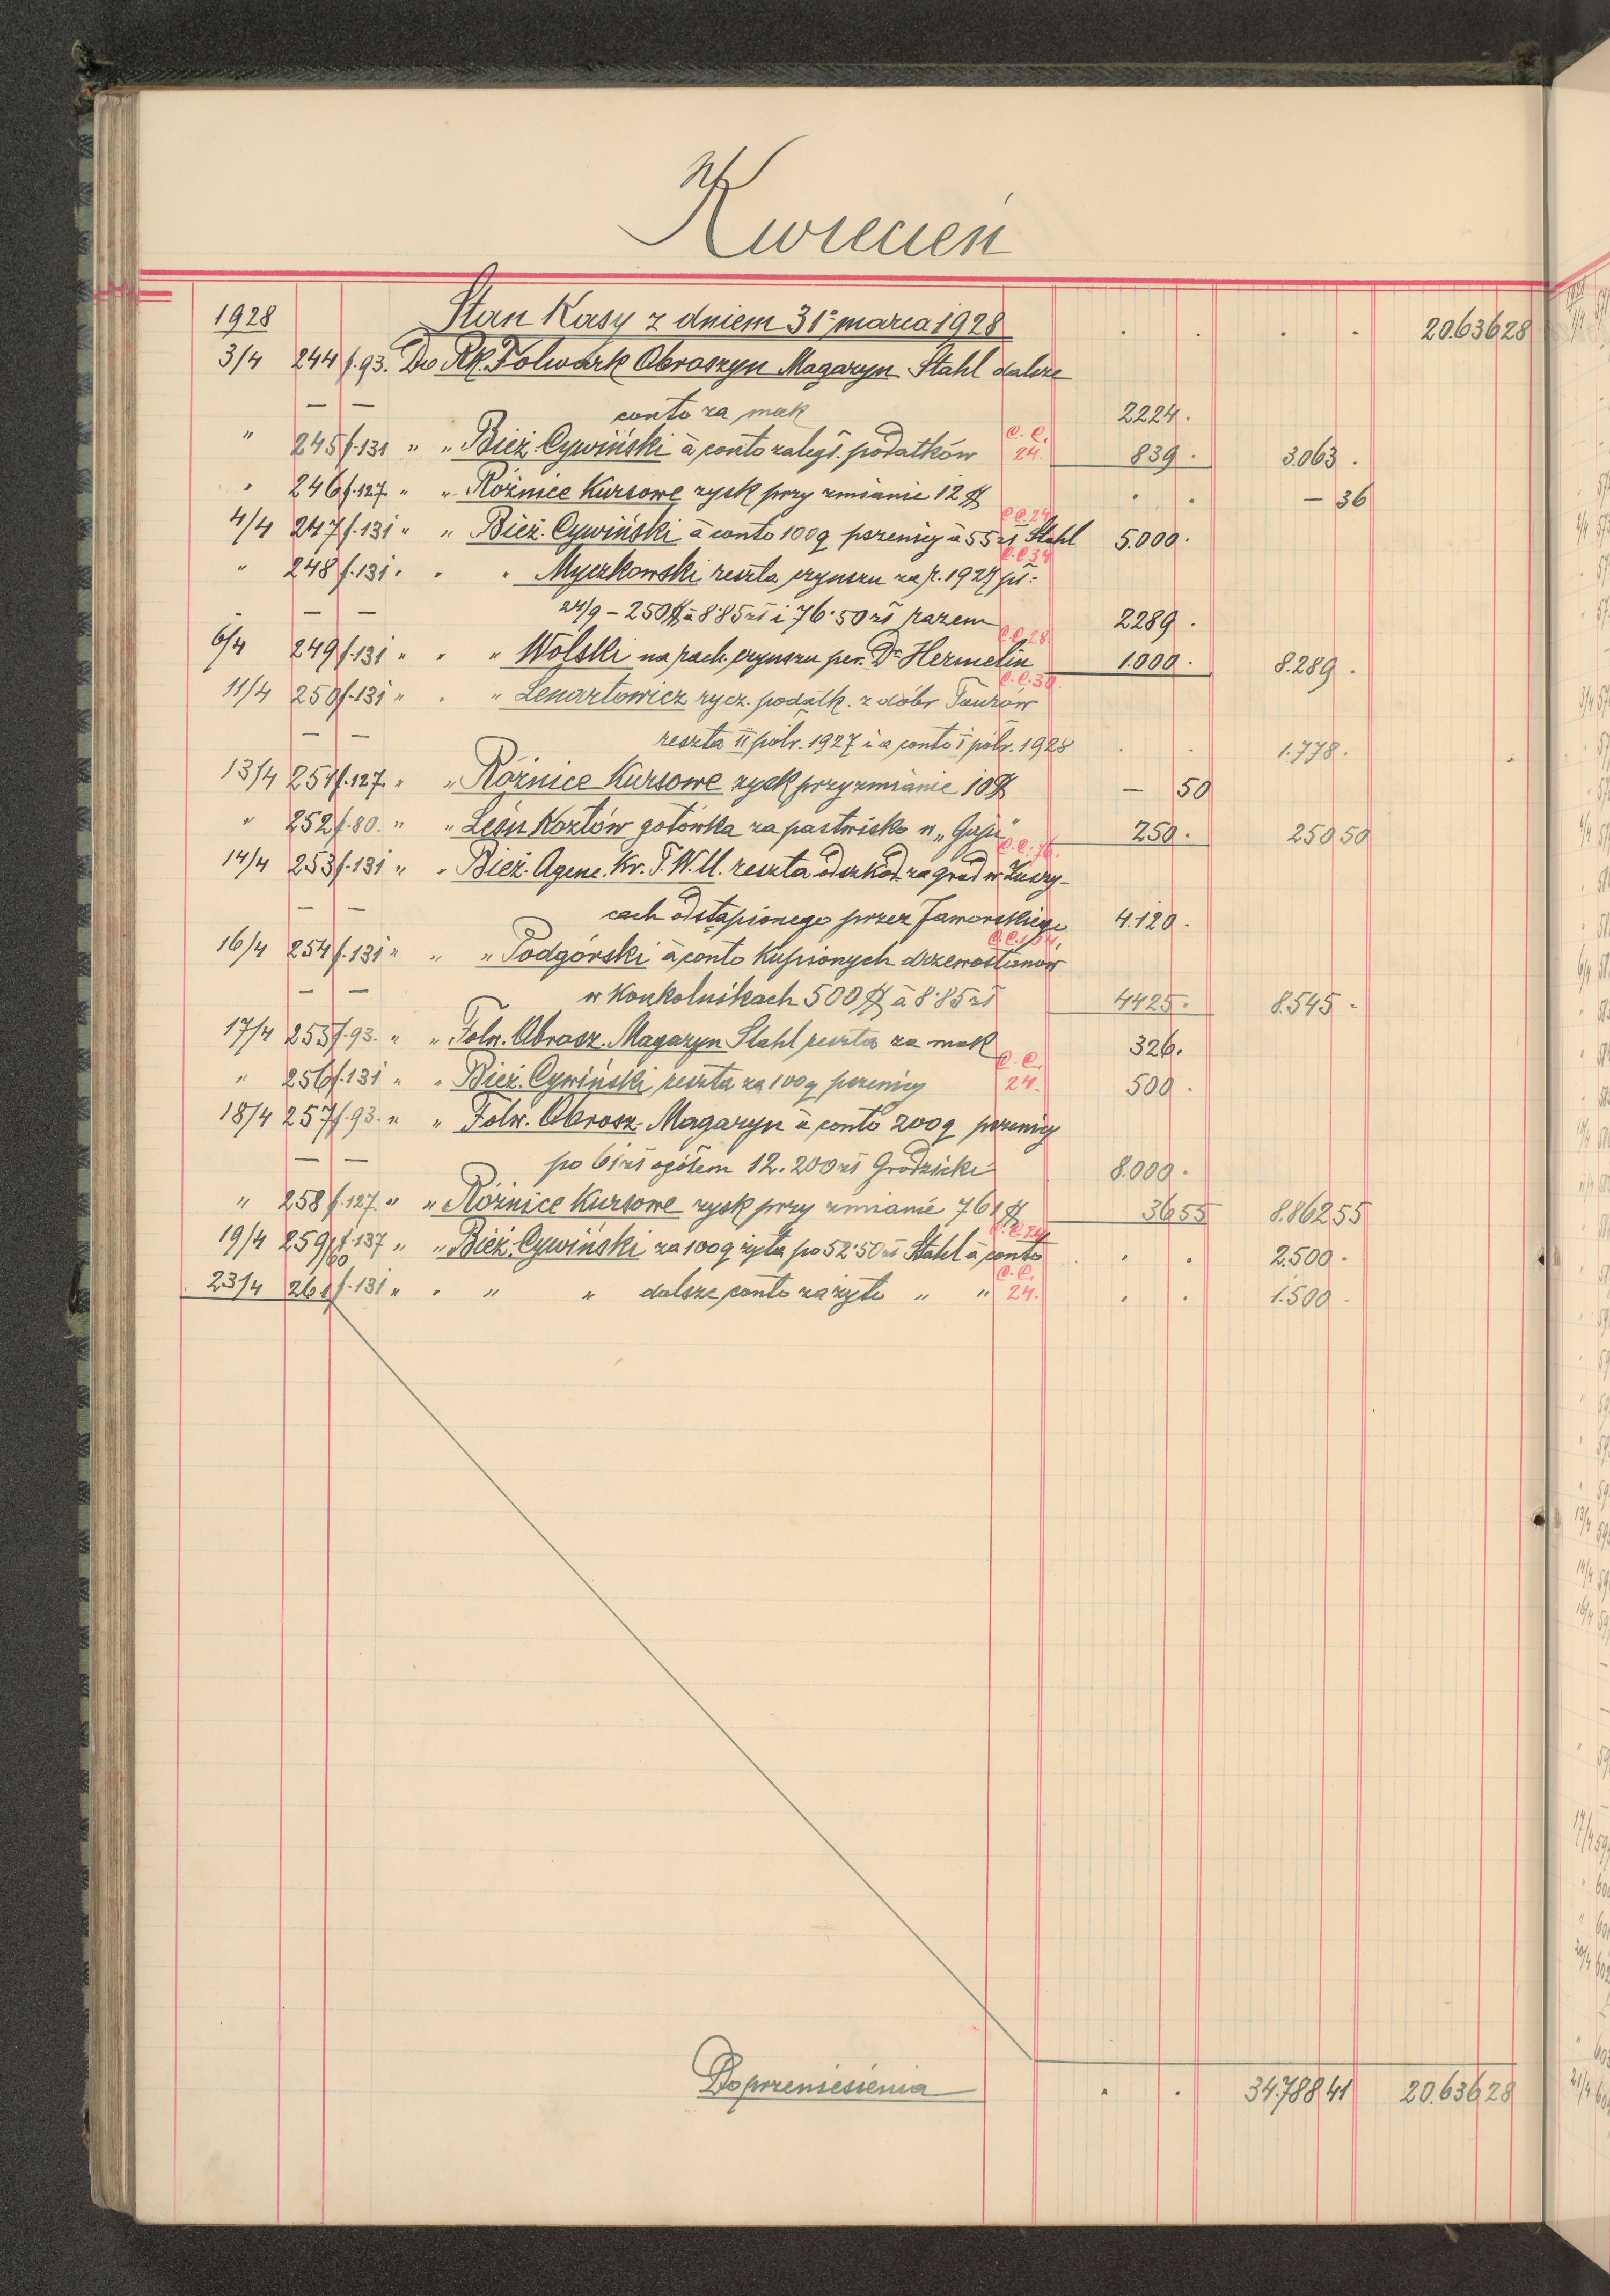 Kwiecień
1928 Stan Kasy z dniem 31º marca 1928 . . . . 20.636 28
3/4 244 f. 93. Do Rk. Folwark Obroszyn Magazyn Stahl dalsze
— — conto za mak 2224 .
" 245 f. 131 " " Bież. Cywiński à conto zaległ. podatków C.C. 24. 839 . 3.063 .
" 246 f. 127. " " Różnice Kursowe zysk przy zmianie 12 $ . . — 36
4/4 247 f. 131 " " Bież. Cywiński à conto 100 q pszenicy à 55 zł Stahl C.C. 24 5.000 .
" 248 f. 131 " " " Myczkowski reszta czynszu za r. 1927 C.C. 34
— — 24/9 – 250 $ à 8·85 zł i 76·50 zł razem 2289 .
6/4 249 f. 131 " " " Wolski na rach. czynszu per. Dr Hermelin C.C. 28 1.000 . 8.289 .
11/4 250 f. 131 " " " Lenartowicz rycz. podatk. z dóbr C.C. 30.
— — reszta II półr. 1927 i a conto I półr. 1928 . . 1.778 .
13/4 251 f. 127. " " Różnice Kursowe zysk przy zmianie 10 $ — 50
" 252 f. 80. " " Leśn. Kozłów gotówka za pastwisko w „Gaju" 250 . 250 50
14/4 253 f. 131 " " Bież. Agenc. Kr. T. W. U. reszta odszkod. za grad w C.C. 76.
— — cach odstąpionego przez Jaworskiego 4.120 .
16/4 254 f. 131 " " " Podgórski à conto kupionych drzewostanów C.C. 104.
— — w Konkolnikach 500 $ à 8·85 zł 4425 . 8.545 .
17/4 255 f. 93. " " Folw. Obrosz. Magazyn Stahl reszta za mak 326 .
" 256 f. 131 " " Bież. Cywiński reszta za 100 q pszenicy C.C. 24. 500 .
18/4 257 f. 93. " " Folw. Obrosz. Magazyn à conto 200 q pszenicy
— — po 61 zł ogółem 12.200 zł Grodzicki 8.000 .
" 258 f. 127. " " Różnice Kursowe zysk przy zmianie 761 $ 36 55 8.862 55
19/4 259/60 f. 137 " " Bież. Cywiński za 100 q żyta po 52·50 zł Stahl à conto C.C. 24 . . 2.500 .
23/4 261 f. 131 " " " " dalsze conto za żyto " " C.C. 24. . . 1.500 .
Do przeniesienia . . 34.788 41 20.636 28